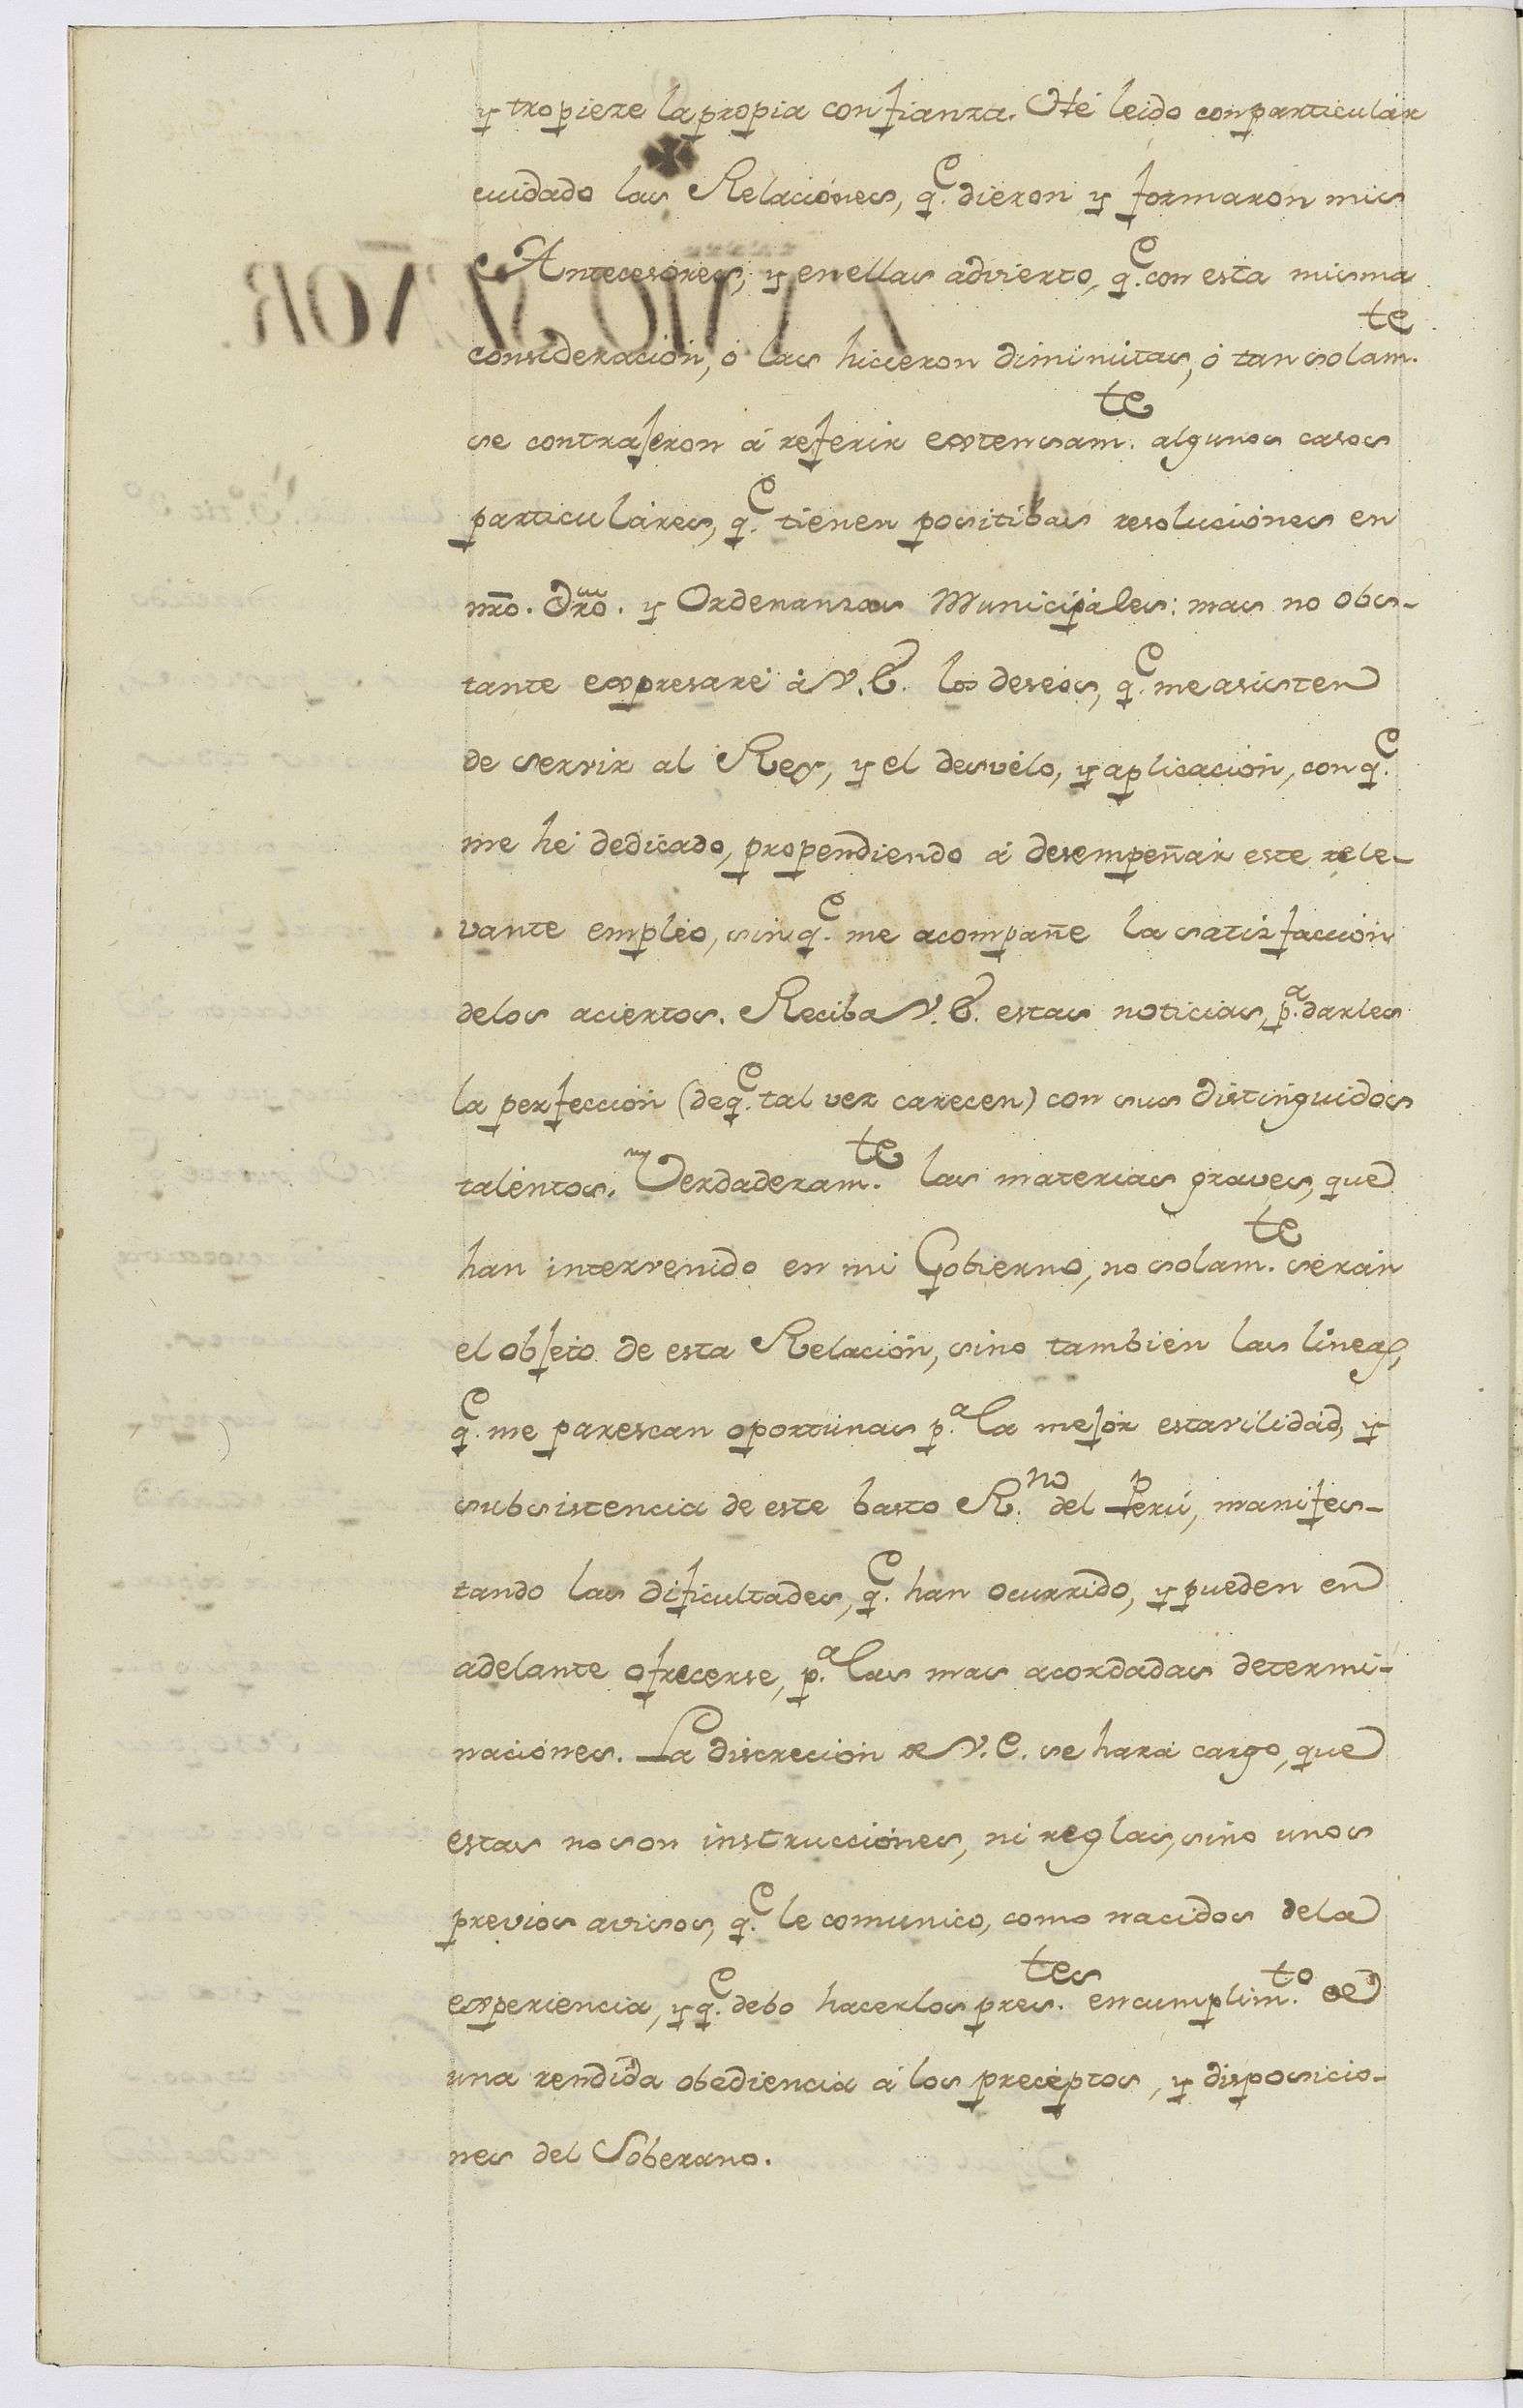 y tropieze la propia confianza. Hé leido con particulár
cuidado las Relaciónes, q.e dieron y formaron mis
Antecesóres, y en ellas advierto, q.e con esta misma
consideración, ó las hicieron diminútas, ó tan solam.te
se contrajeron á referir extensam.te algunos casos
particuláres, q.e tienen positibas resoluciónes en
nr̃o. Dr̃o. y Ordenanzas Municipáles: mas no obs-
tante expresaré á V.E. los deseós, q.e me asisten
de servir al Rey, y el desvélo, y aplicación, con q.e
me hé dedicado, propendiendo á desempeñár este rele-
vante empléo, sin q.e me acompañe la satisfacción
de los aciertos. Reciba V.E. estas noticias, p.a darles
la perfección (de q.e tal vez carecen) con sus distinguidos
taléntos. Verdaderam.te las materias graves, que
han intervenido en mi Gobierno, no solam.te serán
el objéto de esta Relación, sino también las líneas,
q.e me parescan oportúnas p.a la mejór estavilidád, y
subsistencia de este basto R.no del Perú, manifes-
tando las dificultades, q.e han ocurrido, y pueden en
adelante ofrecerse, p.a las mas acordadas determi-
naciónes. La discreción de V.E. se hará cargo, que
estas no son instrucciónes, ni reglas, sino unos
previos avisos, q.e le comunico, como nacidos de la
experiencia, y q.e debo hacerlos pres.tes en cumplim.to de
una rendida obediencia á los precéptos, y disposicio-
nes del Soberano.